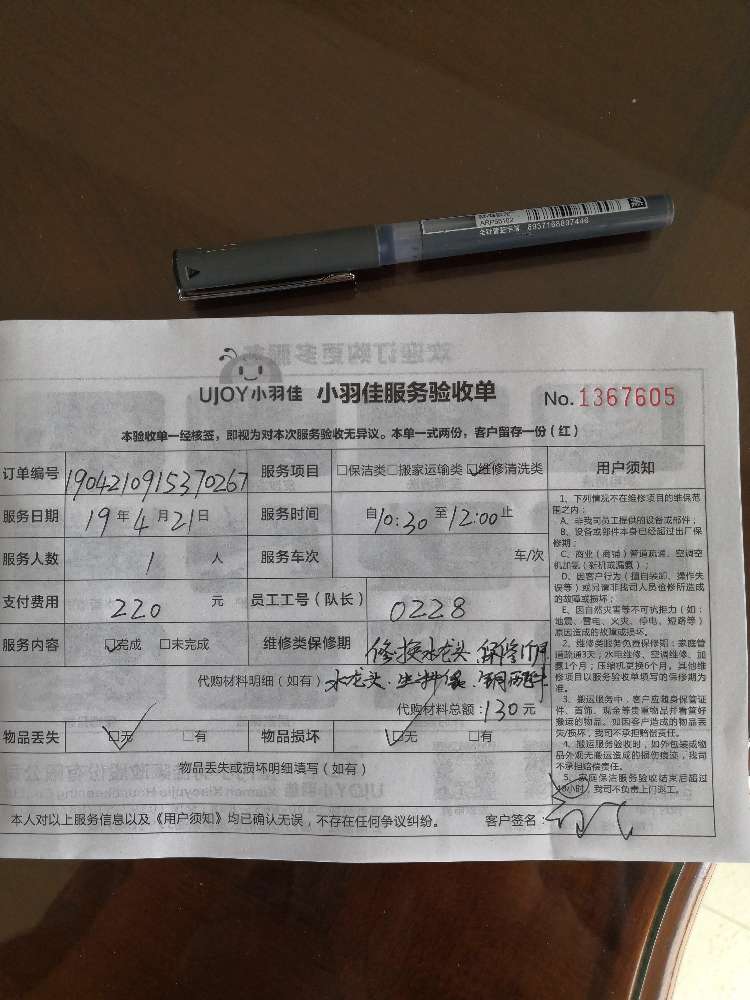 8937168897446
UJOY小羽佳 小羽佳服务验收单 No.1367605
本验收单一经核签，即视为对本次服务验收无异议。本单一式两份，客户留存一份（红）
订单编号 1904210915370267 服务项目 □保洁类□搬家运输类☑维修清洗类 用户须知
服务日期 19年4月21日 服务时间 自10:30至12:00止
服务人数 1 人 服务车次 车/次
支付费用 220 元 员工工号（队长） 0228
服务内容 ☑完成 □未完成 维修类保修期 修换水龙头
代购材料明细（如有） 水龙头
代购材料总额：130元
物品丢失 ☑无 □有 物品损坏 ☑无 □有
物品丢失或损坏明细填写（如有）
本人对以上服务信息以及《用户须知》均已确认无误，不存在任何争议纠纷。 客户签名：
1、下列情况不在维修项目的维保范
围之内：
A、非我司员工提供的设备或部件；
B、设备或部件本身已经超过出厂保
修期；
C、商业（商铺）管道疏通、空调空
机加氨（新机或漏氨）；
D、因客户行为（擅自装卸、操作失
误等）或另请非我司人员检修所造成
的故障或损坏；
E、因自然灾害等不可抗拒力（如：
地震、雷电、火灾、停电、短路等）
原因造成的故障或损坏。
2、维修类服务免费保修期如：家庭管
道疏通3天；水电维修、空调维修、加
氨1个月；压缩机更换6个月。其他维
修项目以服务验收单填写的保修期为
准。
3、搬运服务中，客户应随身保管证
件、首饰、现金等贵重物品并看管好
搬运的物品。如因客户造成的物品丢
失/损坏，我司不承担赔偿责任。
4、搬运服务验收时，如外包装或物
品外观无搬运造成的损伤痕迹，我司
不承担赔偿责任。
5、家庭保洁服务验收结束后超过
48小时，我司不负责上门返工。